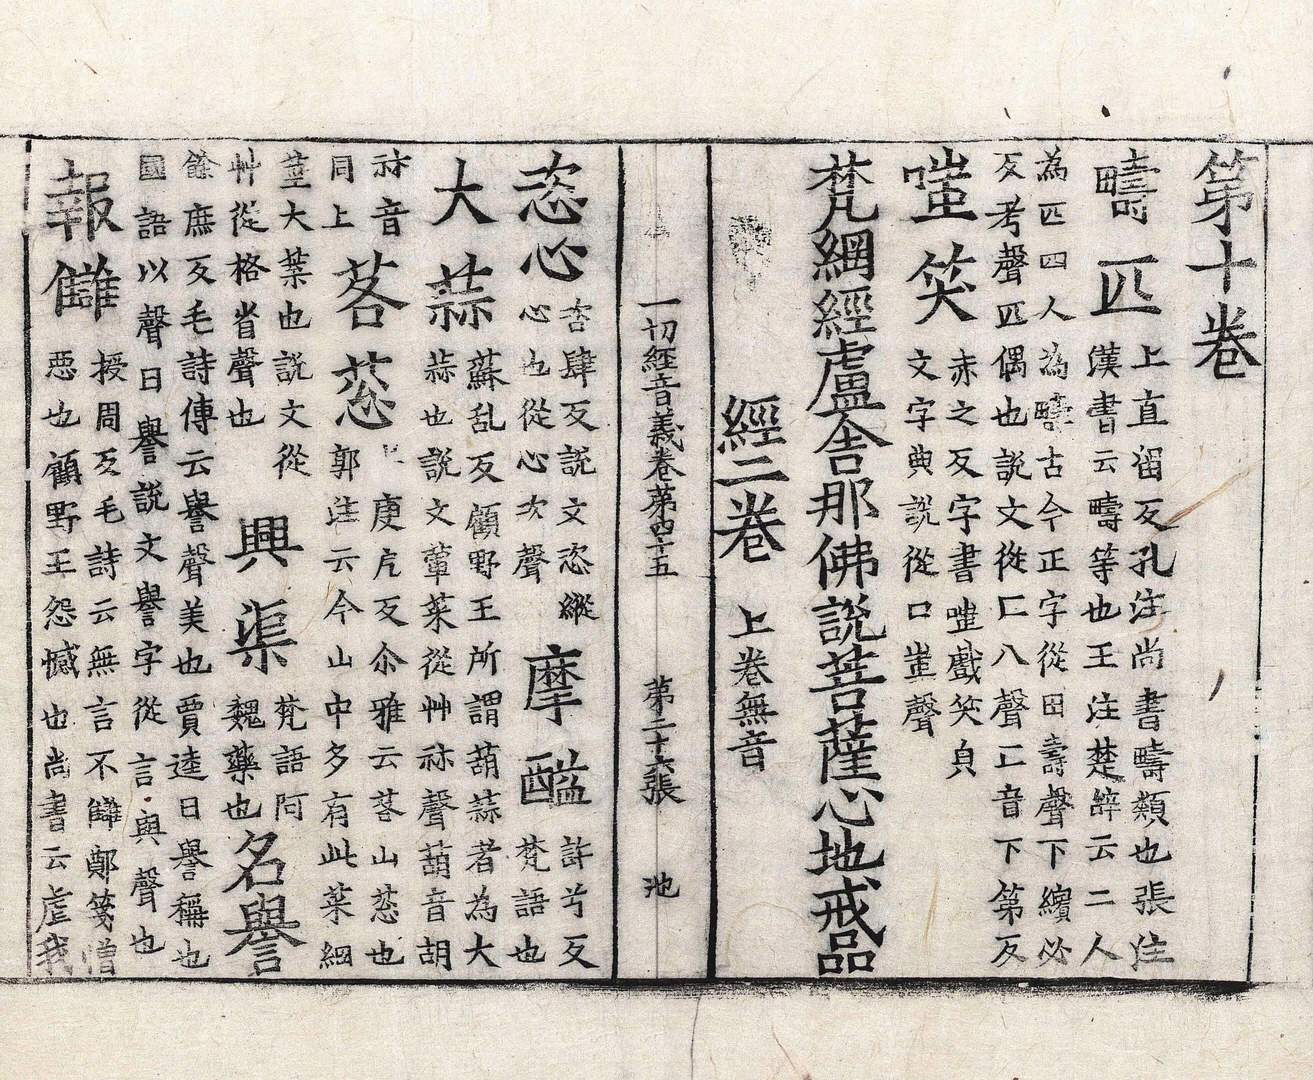 第十卷
疇匹 上直留反孔注尚書疇類也張注
漢書云疇等也王注楚辞云二人
為匹四人為疇古今正字從田壽聲下繽必
反考聲匹偶也説文從匚八聲匚音下第反
嗤笑 赤之反字書嗤戲笑皃
文字典説從口蚩聲
梵網經盧舍那佛説菩薩心地戒品
經二卷 上卷無音
一切經音義卷第四十五 第二十六張 池
恣心 咨肆反説文恣縱
心也從心次聲
摩醯 許兮反
梵語也
大蒜 蘇乱反顧野王所謂葫蒜者為大
蒜也説文葷菜從艸祘聲葫音胡
祘音
同上
茖葱 庚㡿反尒雅云茖山葱也
郭注云今山中多有此菜細
莖大葉也説文從
艸從格省聲也
興渠 梵語阿
魏藥也
名譽
餘庶反毛詩傳云譽聲美也賈逵曰譽稱也
國語以聲曰譽説文譽字從言與聲也
報讎 授周反毛詩云無言不讎鄭箋憎
惡也顧野王怨憾也尚書云虐我